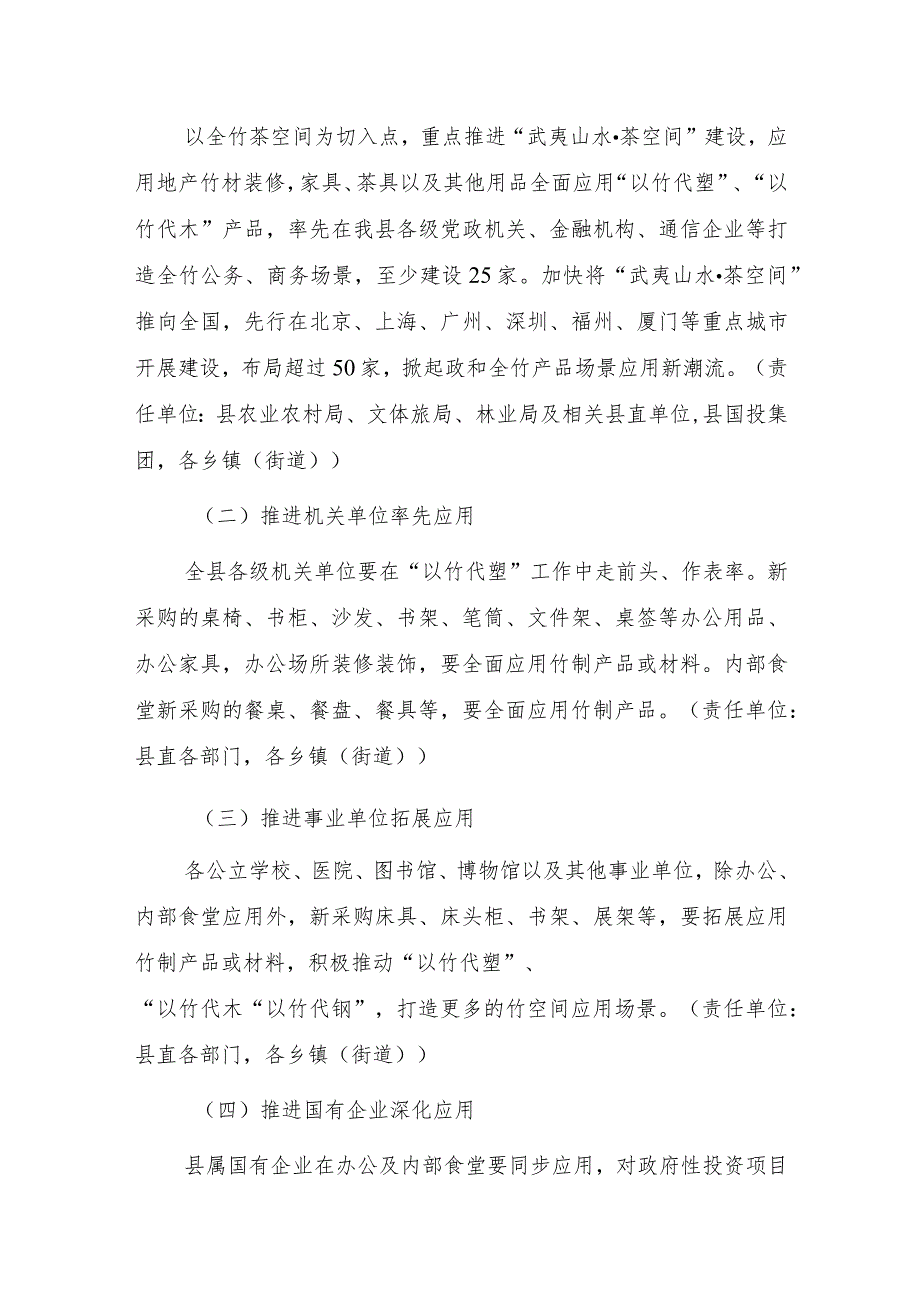 以全竹茶空间为切入点，重点推进“武夷山水•茶空间”建设，应
用地产竹材装修,家具、茶具以及其他用品全面应用“以竹代塑”、“以
竹代木”产品，率先在我县各级党政机关、金融机构、通信企业等打
造全竹公务、商务场景，至少建设25家。加快将“武夷山水•茶空间”
推向全国，先行在北京、上海、广州、深圳、福州、厦门等重点城市
开展建设，布局超过50家，掀起政和全竹产品场景应用新潮流。（责
任单位：县农业农村局、文体旅局、林业局及相关县直单位,县国投集
团，各乡镇（街道））
（二）推进机关单位率先应用
全县各级机关单位要在“以竹代塑”工作中走前头、作表率。新
采购的桌椅、书柜、沙发、书架、笔筒、文件架、桌签等办公用品、
办公家具，办公场所装修装饰，要全面应用竹制产品或材料。内部食
堂新采购的餐桌、餐盘、餐具等，要全面应用竹制产品。（责任单位：
县直各部门，各乡镇（街道））
（三）推进事业单位拓展应用
各公立学校、医院、图书馆、博物馆以及其他事业单位，除办公、
内部食堂应用外，新采购床具、床头柜、书架、展架等，要拓展应用
竹制产品或材料，积极推动“以竹代塑”、
“以竹代木“以竹代钢”，打造更多的竹空间应用场景。（责任单位：
县直各部门，各乡镇（街道））
（四）推进国有企业深化应用
县属国有企业在办公及内部食堂要同步应用，对政府性投资项目